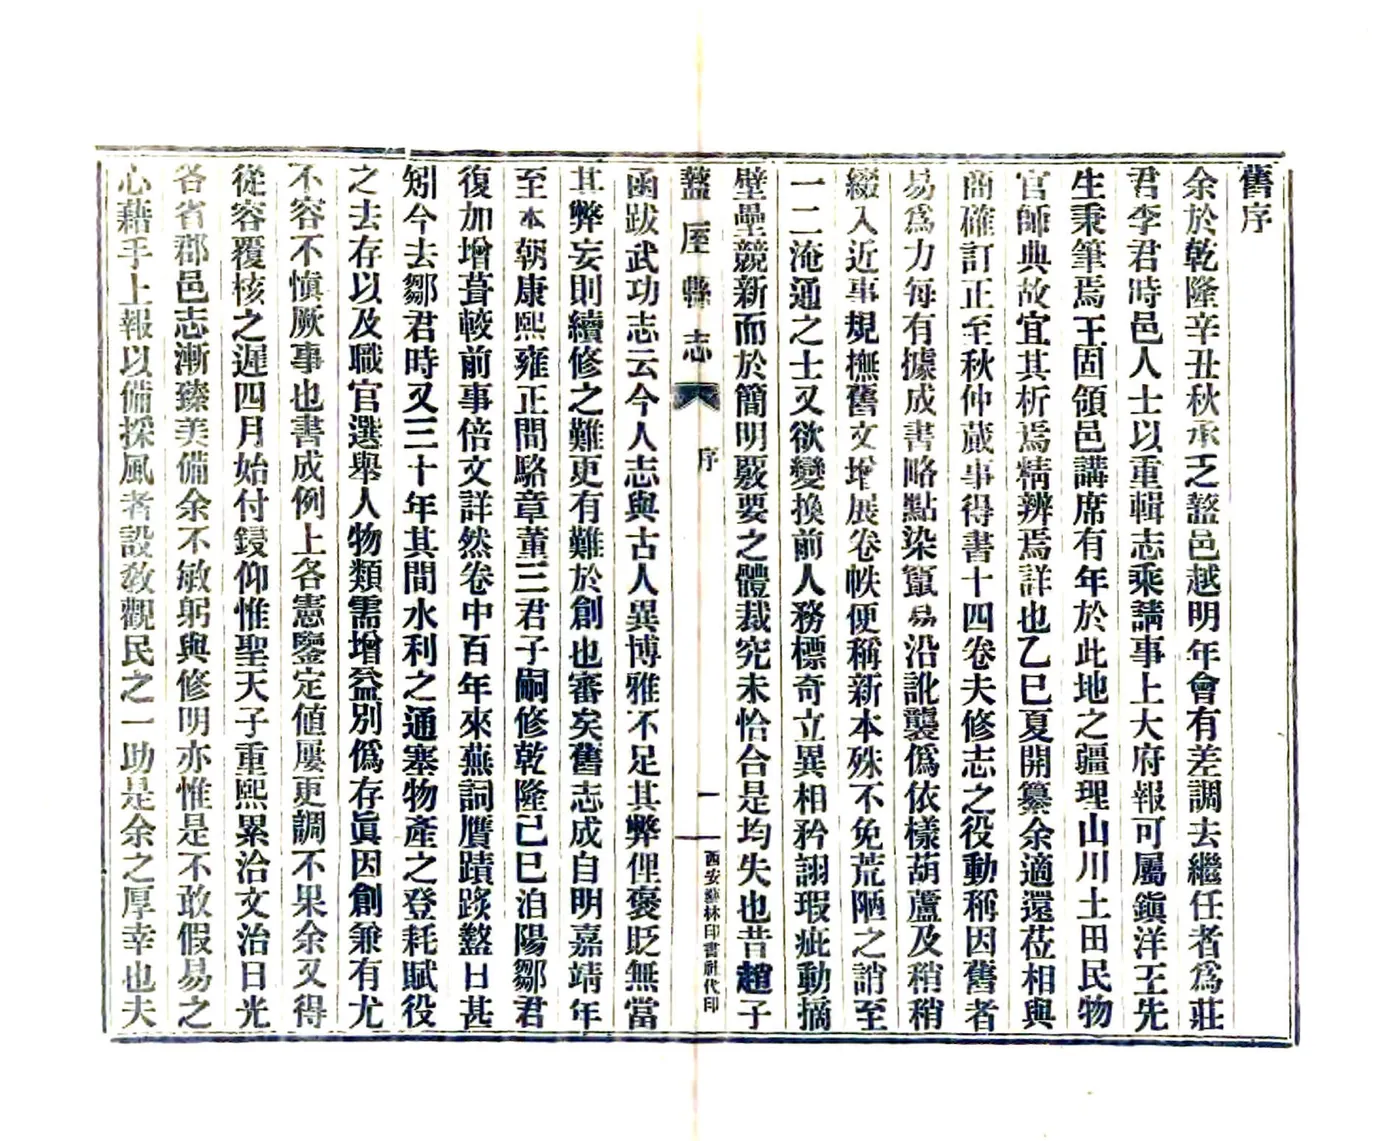 舊序
余於乾隆辛丑秋承乏盩邑越明年會有差調去繼任者爲莊
君李君時邑人士以重輯志乘請事上大府報可屬鎭洋王先
生秉筆焉王固領邑講席有年於此地之疆理山川土田民物
官師典故宜其析焉精辨焉詳也乙巳夏開纂余適還莅相與
商確訂正至秋仲蕆事得書十四卷夫修志之役動稱因舊者
易爲力每有據成書略點染竄易沿訛襲僞依樣葫蘆及稍稍
綴入近事規橅舊文增展卷帙便稱新本殊不免荒陋之誚至
一二淹通之士又欲變換前人務標奇立異相矜詡瑕疵動摘
壁壘競新而於簡明覈要之體裁究未恰合是均失也昔趙子
盩厔縣志
序
一
西安藝林印書社代印
函跋武功志云今人志與古人異博雅不足其弊俚褒貶無當
其弊妄則續修之難更有難於創也審矣舊志成自明嘉靖年
至本朝康熙雍正間駱章董三君子嗣修乾隆己巳洎陽鄒君
復加增葺較前事倍文詳然卷中百年來蕪詞贗蹟踳盭日甚
矧今去鄒君時又三十年其間水利之通塞物產之登耗賦役
之去存以及職官選舉人物類需增益別僞存眞因創兼有尤
不容不愼厥事也書成例上各憲鑒定値屢更調不果余又得
從容覆核之遲四月始付鋟仰惟聖天子重熙累洽文治日光
各省郡邑志漸臻美備余不敏躬與修明亦惟是不敢假易之
心藉手上報以備採風者設敎觀民之一助是余之厚幸也夫